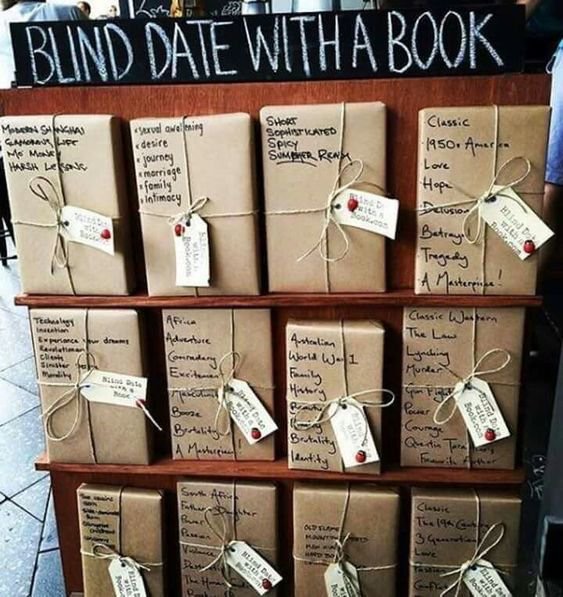 BLIND DATE WITH A BOOK
MODERN SHANGHAI
GLAMOROUS LIFE
MO MONEY
HARSH LESSONS
Blind Date
with a
Book.com
• sexual awakening
• desire
• journey
• marriage
• family
• intimacy
Blind Date
with a
Book.com
SHORT
SOPHISTICATED
SPICY
SUMMER READ
Blind Date
with a
Book.com
Classic
1950s America
Love
Hope
Delusion
Betrayal
Tragedy
A Masterpiece!
Blind Date
with a
Book.com
Technology
Invention
Experience your dreams
Revolutionary
Clients
Sinister
Morality
Blind Date
with a
Book.com
Africa
Adventure
Comradery
Excitement
Masculinity
Booze
Brutality
A Masterpiece!
Blind Date
with a
Book.com
Australian
World War 1
Family
History
Beauty
Brutality
Identity
Blind Date
with a
Book.com
Classic Western
The Law
Lynching
Murder
Gun Fight
Power
Courage
Quentin Tarantino's
Favourite Author
Blind Date
with a
Book.com
South Africa
Father Daughter
Power
Passion
Violence
The Human
Blind Date
with a
Book.com
OLD FLAME
Blind Date
with a
Classic
The 19th Century
3 Generations
Love
Conflict
Blind Date
with a
Book.com